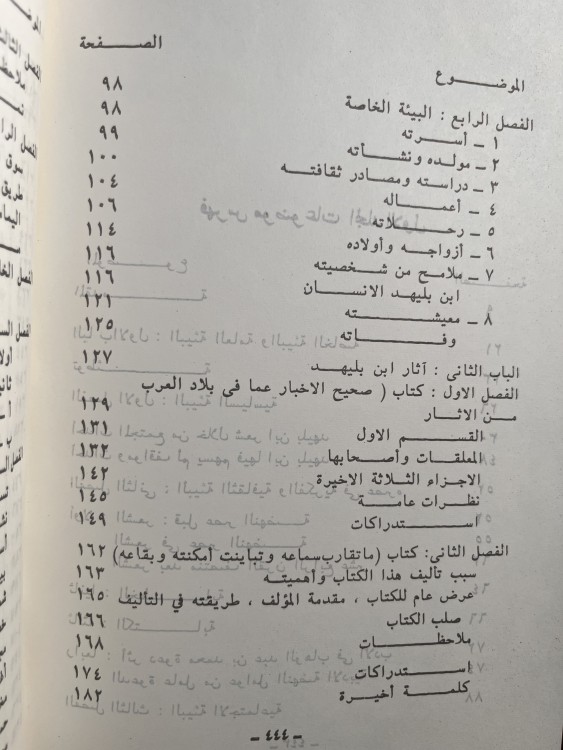 الموضـــوع الصـــفحة
الفصل الرابع : البيئة الخاصة ٩٨
١ ــ أســرته ٩٨
٢ ــ مولده ونشــأته ٩٩
٣ ــ دراسته ومصادر ثقافتــه ١٠٠
٤ ــ أعمــاله ١٠٤
٥ ــ رحــلاته ١٠٦
٦ ــ أزواجــه وأولاده ١١٤
٧ ــ ملامح من شــخصيته ١١٦
ابن بليهد الانســان ١١٦
٨ ــ معيشــته ١٢١
وفــاته ١٢٥
الباب الثانى : آثار ابن بليهــد ١٢٧
الفصل الاول : كتاب ( صحيح الاخبار عما فى بلاد العرب
مــن الاثــار ١٢٩
القســـم الاول ١٣١
المعلقات وأصحابها ١٣٢
الاجزاء الثلاثة الاخيرة ١٤٢
نظرات عامــة ١٤٥
اســتدراكات ١٤٩
الفصل الثانى: كتاب (ماتقارب سماعه وتباينت أمكنته وبقاعه) ١٦٢
سبب تأليف هذا الكتاب وأهميتــه ١٦٣
عرض عام للكتاب ، مقدمة المؤلف ، طريقته في التأليف ١٦٥
صلب الكتاب ١٦٦
ملاحظــات ١٦٨
اســتدراكات ١٧٤
كلمــة أخيــرة ١٨٢
ــ ٤٤٤ ــ